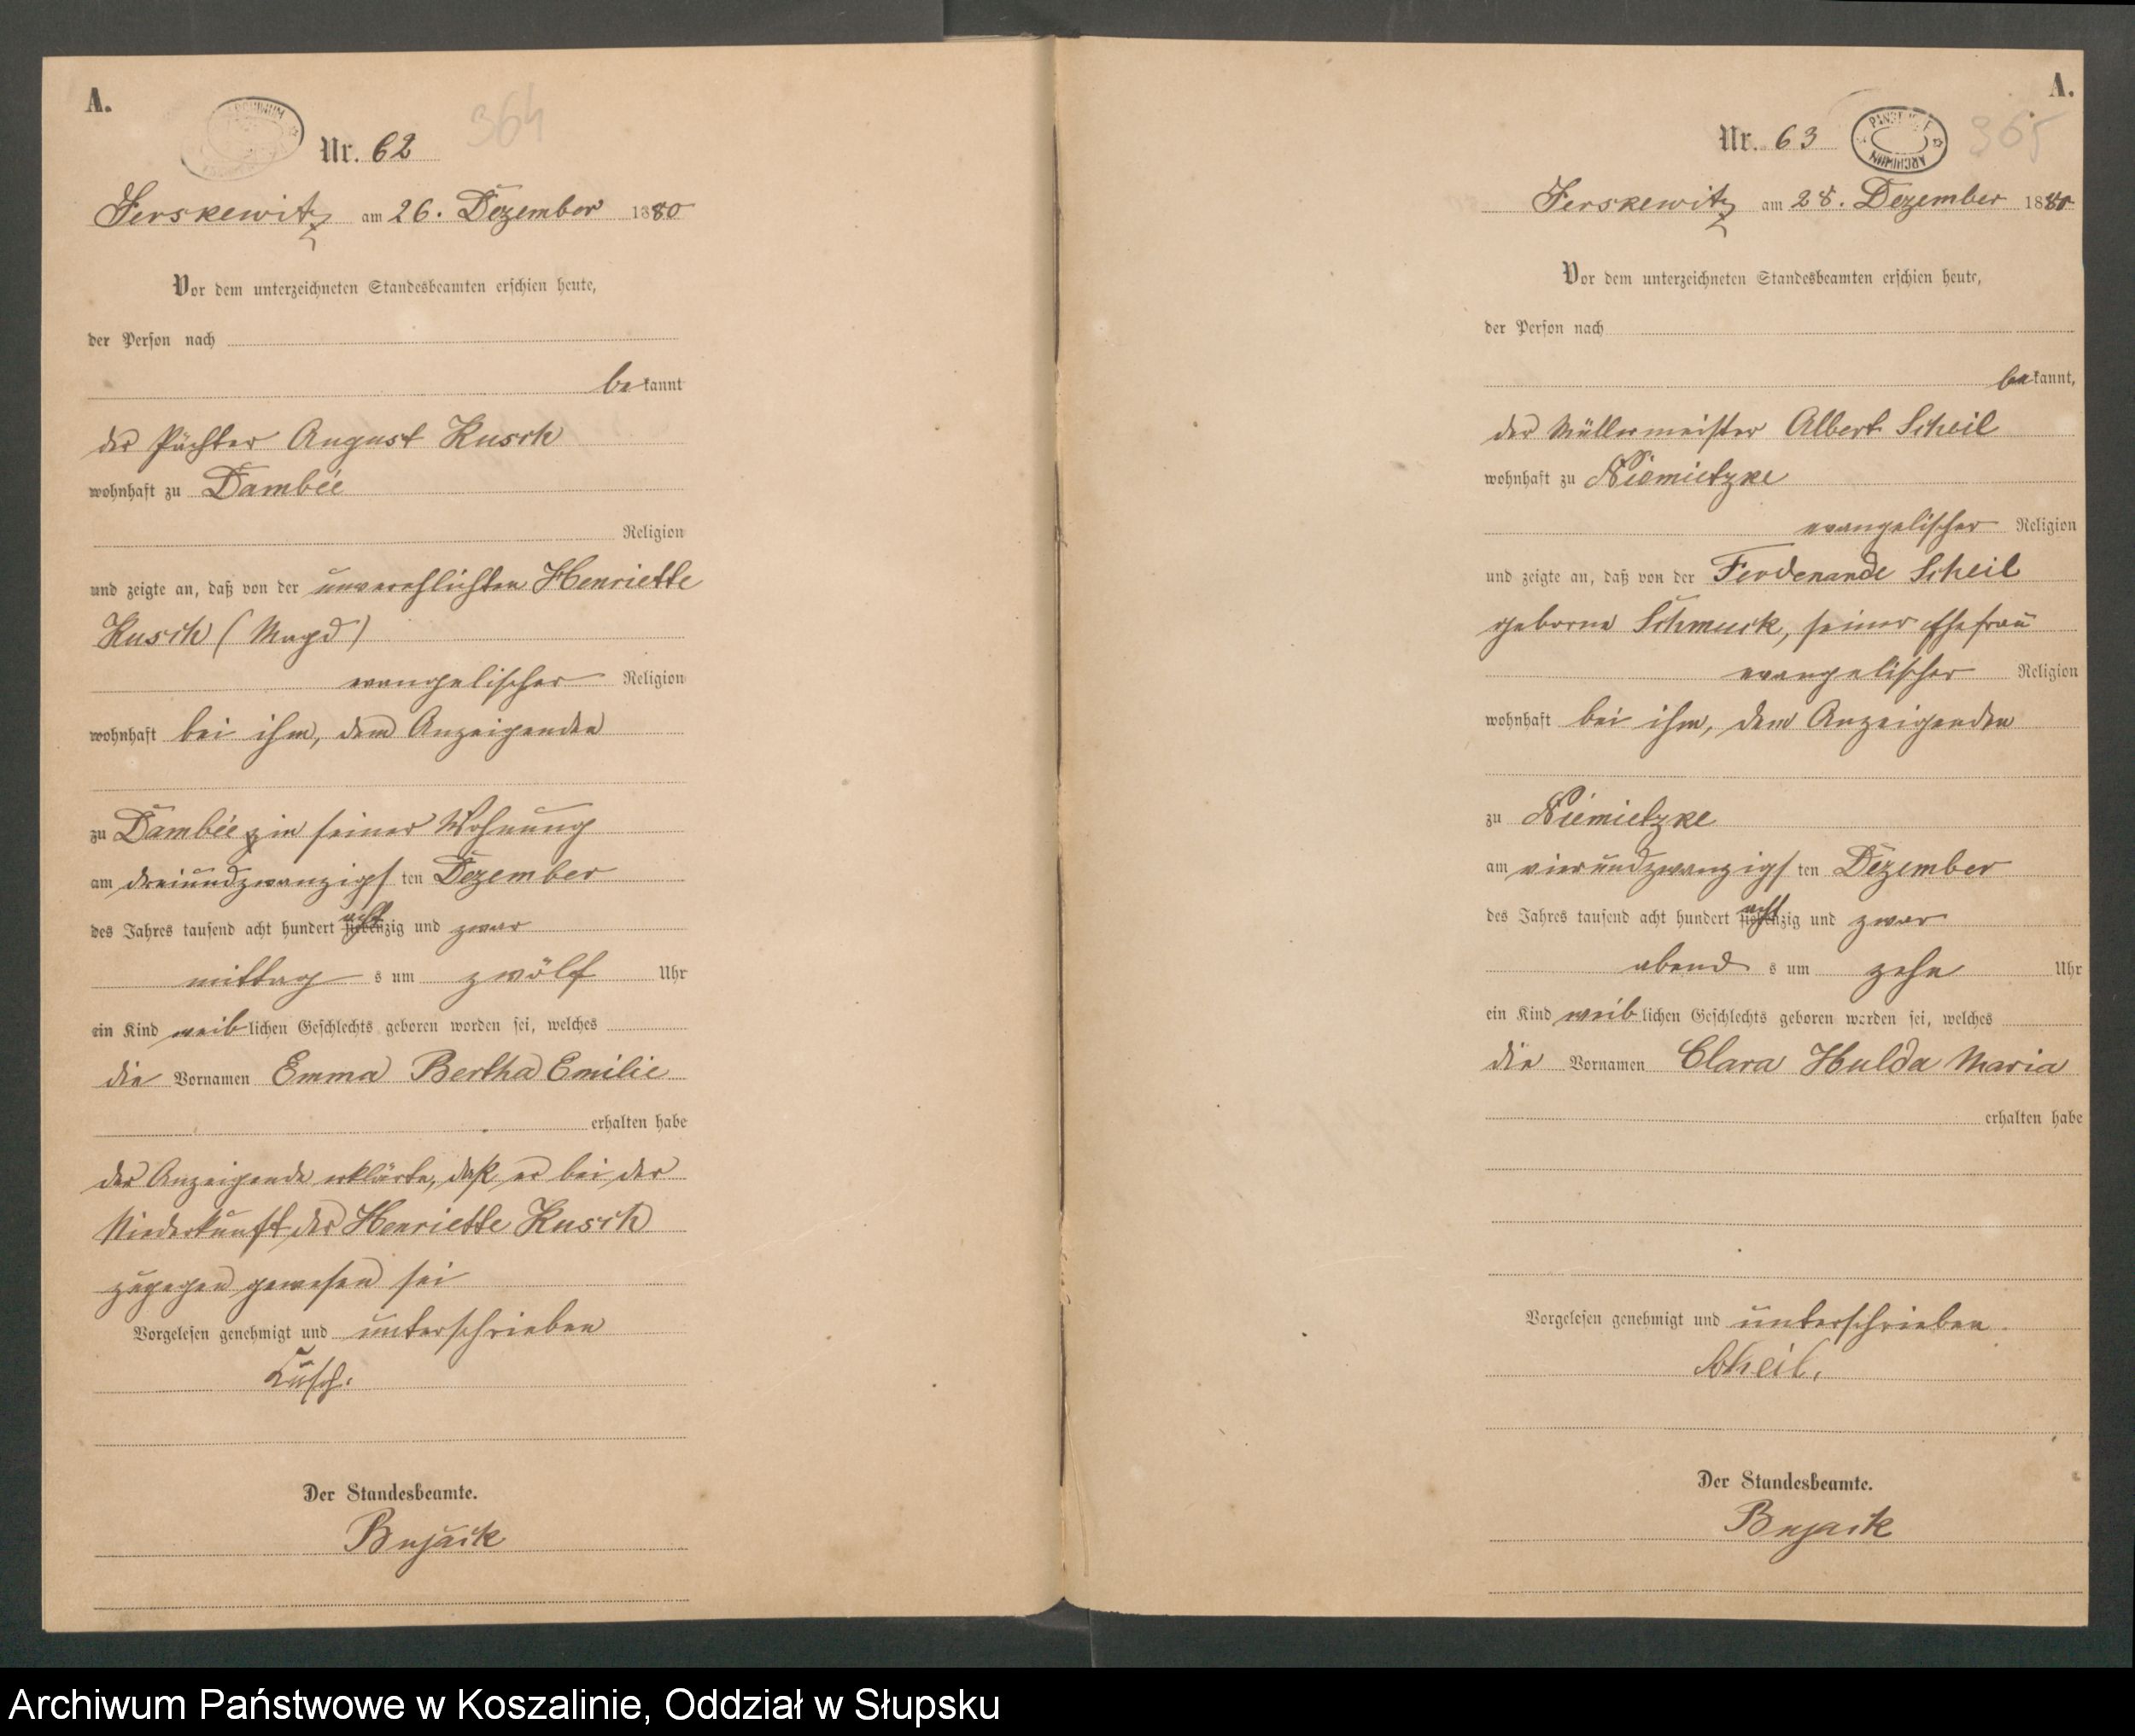 A.
364
Nr. 62
Jerskewitz am 26. Dezember 1880
Vor dem unterzeichneten Standesbeamten erschien heute,
der Person nach
bekannt
der Pächter August Kusch
wohnhaft zu Dambée
Religion
und zeigte an, daß von der unverehlichten Henriette
Kusch (Magd)
evangelischer Religion
wohnhaft bei ihm, dem Anzeigenden
zu Dambée in seiner Wohnung
am dreiundzwanzigsten Dezember
des Jahres tausend acht hundert achtzig und zwar
mittags um zwölf Uhr
ein Kind weiblichen Geschlechts geboren worden sei, welches
die Vornamen Emma Bertha Emilie
erhalten habe
der Anzeigende erklärte, daß er bei der
Niederkunft der Henriette Kusch
zugegen gewesen sei
Vorgelesen genehmigt und unterschrieben
Kusch.
Der Standesbeamte.
Bujack
A.
365
Nr. 63
PAŃSTWOWE ARCHIWUM
Jerskewitz am 28. Dezember 1880
Vor dem unterzeichneten Standesbeamten erschien heute,
der Person nach
bekannt,
der Müllermeister Albert Scheil
wohnhaft zu Niemietzke
evangelischer Religion
und zeigte an, daß von der Ferdenande Scheil
geborne Schmuck, seiner Ehefrau
evangelischer Religion
wohnhaft bei ihm, dem Anzeigenden
zu Niemietzke
am vierundzwanzigsten Dezember
des Jahres tausend acht hundert achtzig und zwar
abends um zehn Uhr
ein Kind weiblichen Geschlechts geboren worden sei, welches
die Vornamen Clara Hulda Maria
erhalten habe
Vorgelesen genehmigt und unterschrieben.
Scheil.
Der Standesbeamte.
Bujack
Archiwum Państwowe w Koszalinie, Oddział w Słupsku